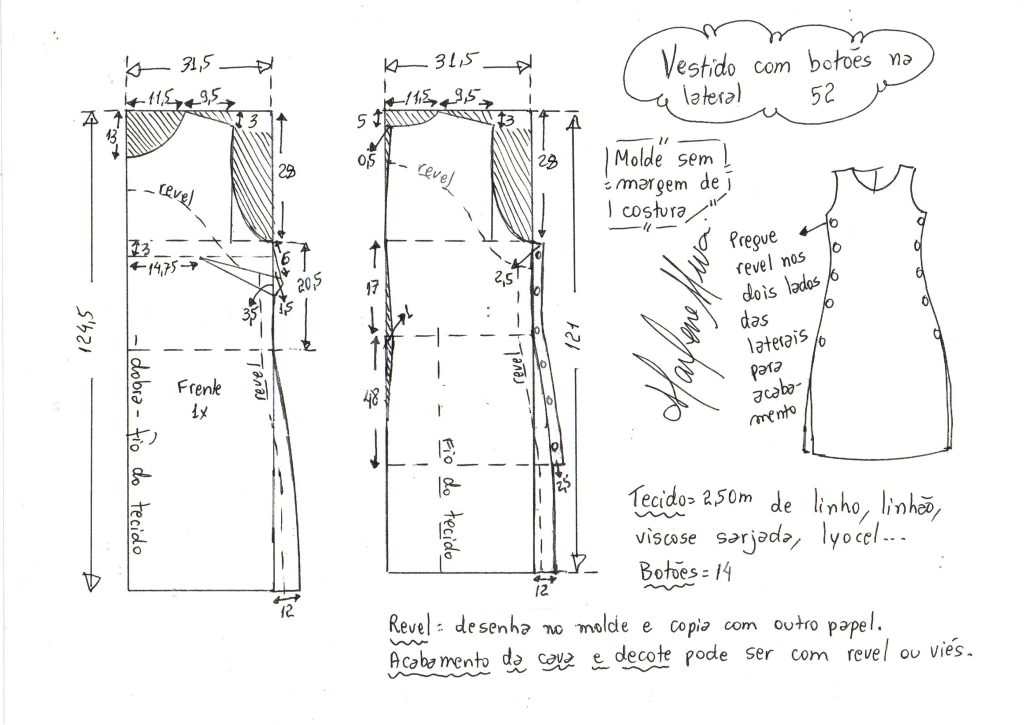 Vestido com botões na
lateral 52
31,5
11,5
9,5
13
3
28
revel
3
14,75
6
20,5
3,5
1,5
124,5
Frente
1x
revel
dobra - fio do tecido
12
31,5
11,5
9,5
5
3
0,5
28
revel
2,5
17
1
48
revel
Fio do tecido
121
2,5
12
Molde sem
margem de
costura
Marlene Mukai
Pregue
revel nos
dois lados
das
laterais
para
acaba-
mento
Tecido = 2,50m de linho, linhão,
viscose sarjada, lyocel...
Botões = 14
Revel = desenha no molde e copia com outro papel.
Acabamento da cava e decote pode ser com revel ou viés.